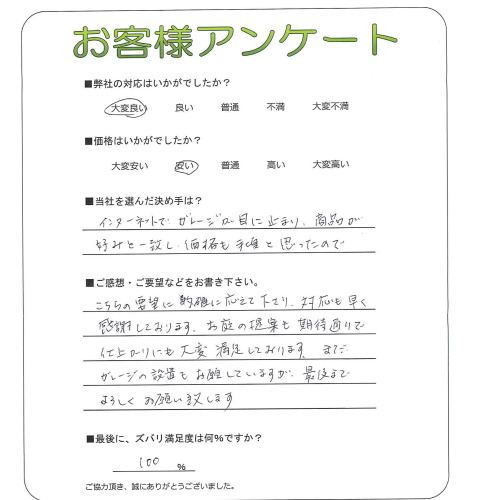 お客様アンケート
■弊社の対応はいかがでしたか？
大変良い 良い 普通 不満 大変不満
■価格はいかがでしたか？
大変安い 安い 普通 高い 大変高い
■当社を選んだ決め手は？
インターネットで ガレージが目に止まり、商品が
好みと一致し、価格も手頃と思ったので
■ご感想・ご要望などをお書き下さい。
こちらの要望に的確に応えて下さり、対応も早く
感謝しております。お庭の提案も期待通りで
仕上がりにも大変満足しております。まだ
ガレージの設置もお願していますが、最後まで
よろしくお願い致します
■最後に、ズバリ満足度は何％ですか？
100 ％
ご協力頂き、誠にありがとうございました。